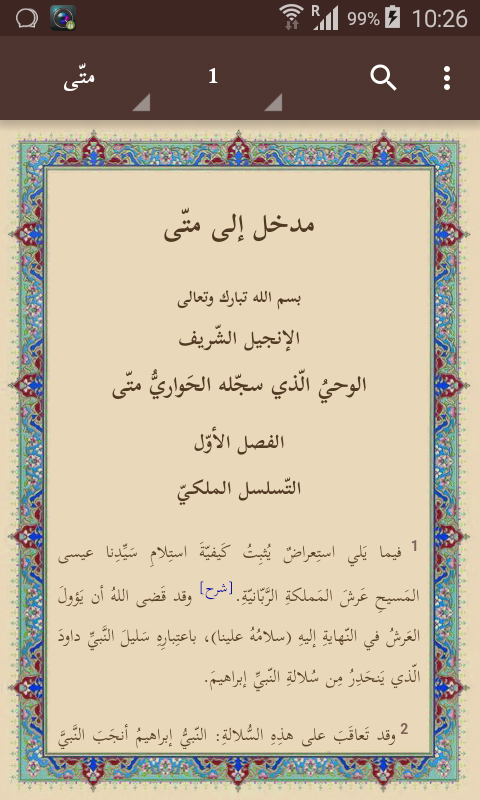 R 99% 10:26
متّى 1
مدخل إلى متّى
بسم الله تبارك وتعالى
الإنجيل الشّريف
الوحيُ الّذي سجّله الحَواريُّ متّى
الفصل الأوّل
التّسلسل الملكيّ
1 فيما يَلي استِعراضٌ يُثبِتُ كَيفيّةَ استِلامِ سَيِّدِنا عيسى
المَسيحِ عَرشَ المَملكةِ الرَّبّانيّةِ.[شرح] وقد قَضى اللهُ أن يَؤولَ
العَرشُ في النّهايةِ إليهِ (سلامُهُ علينا)، باعتِبارِهِ سَليلَ النَّبيِّ داودَ
الّذي يَنحَدِرُ مِن سُلالةِ النّبيِّ إبراهيمَ.
2 وقد تَعاقَبَ على هذِهِ السُّلالةِ: النّبيُّ إبراهيمُ أنجَبَ النَّبيَّ